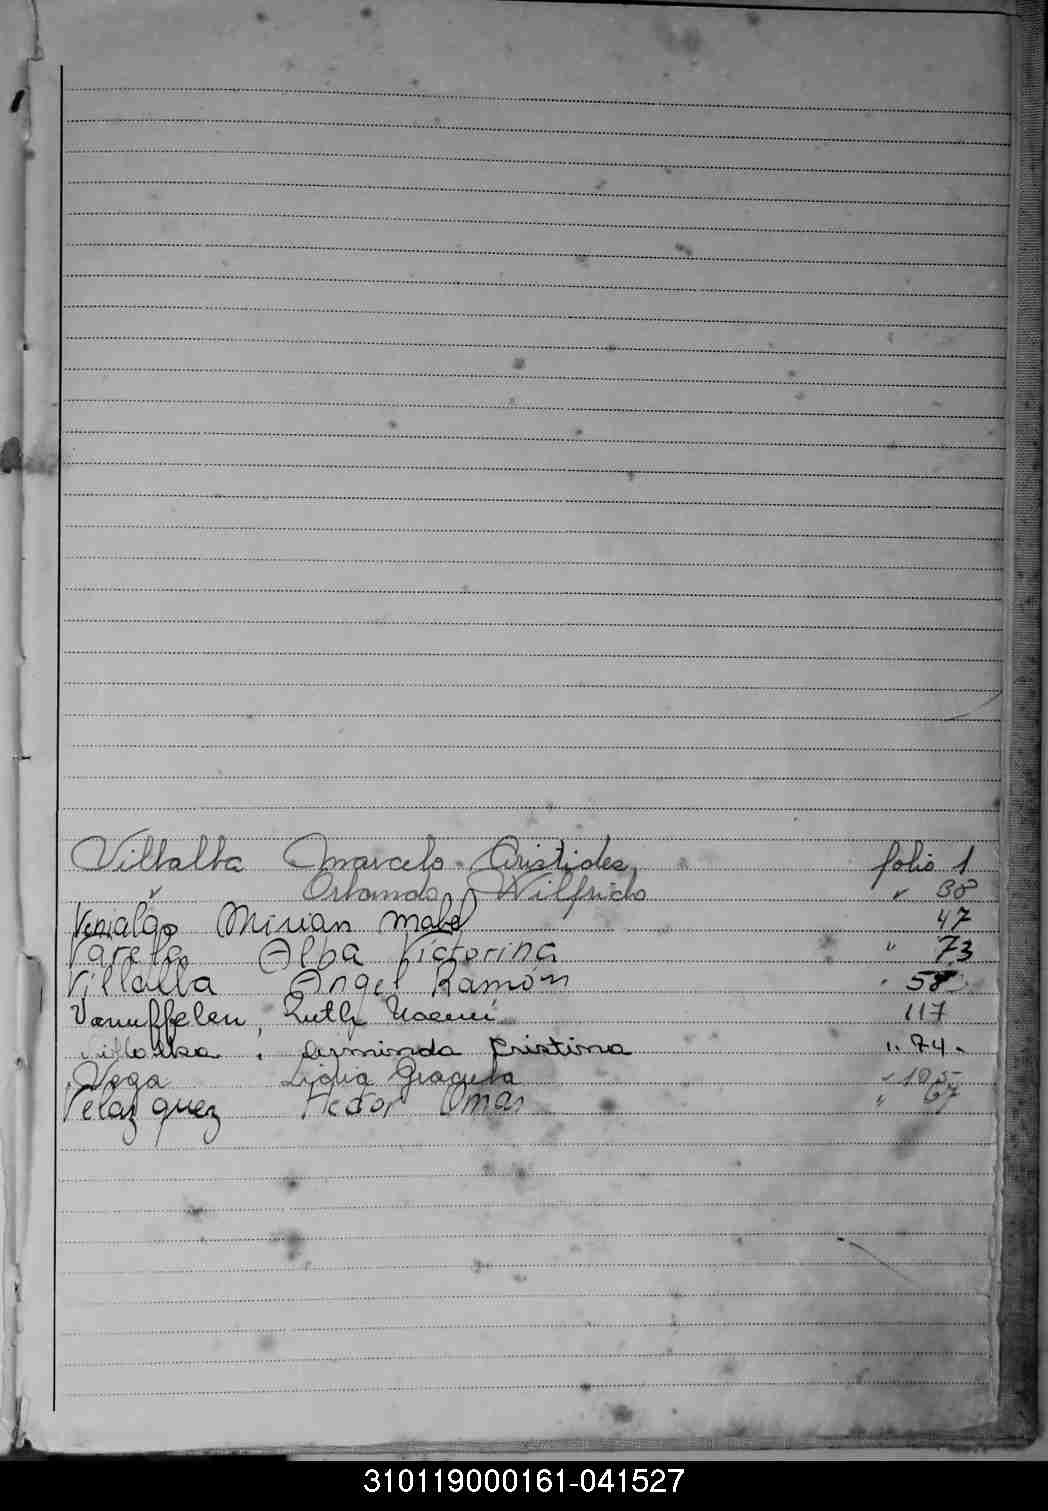 Villalba Marcelo Aristides folio 1
" Orlando Wilfrido " 38
Venialgo Mirian Mabel 47
Varela Alba Victorina " 73
Villalba Angel Ramón " 58
Vanuffelen, Ruth Noemí 117
Villalba . Erminda Cristina ". 74.
Vega Ligia Graciela " 105
Velazquez Hector Omar " 67
310119000161-041527